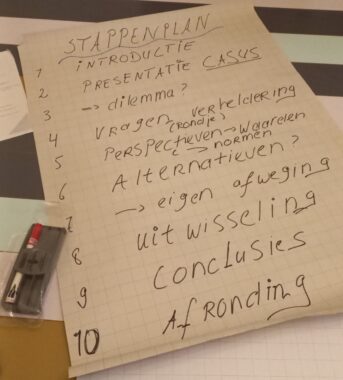 STAPPENPLAN
1 iNTRODUCTIE
2 PRESENTATIE CASUS
3 → dilemma?
4 VRAGEN VERHELDERING
(RONDJE)
5 PERSPECTIEVEN → WAARDEN
→ NORMEN
6 Alternatieven?
7 → eigen afweging
8 uitwisseling
9 Conclusies
10 AfRONDing